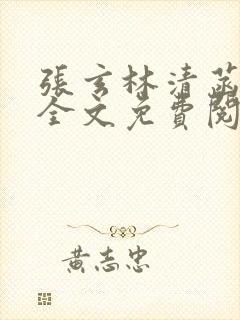 張玄林清菡
全文免費閱
黃志忠